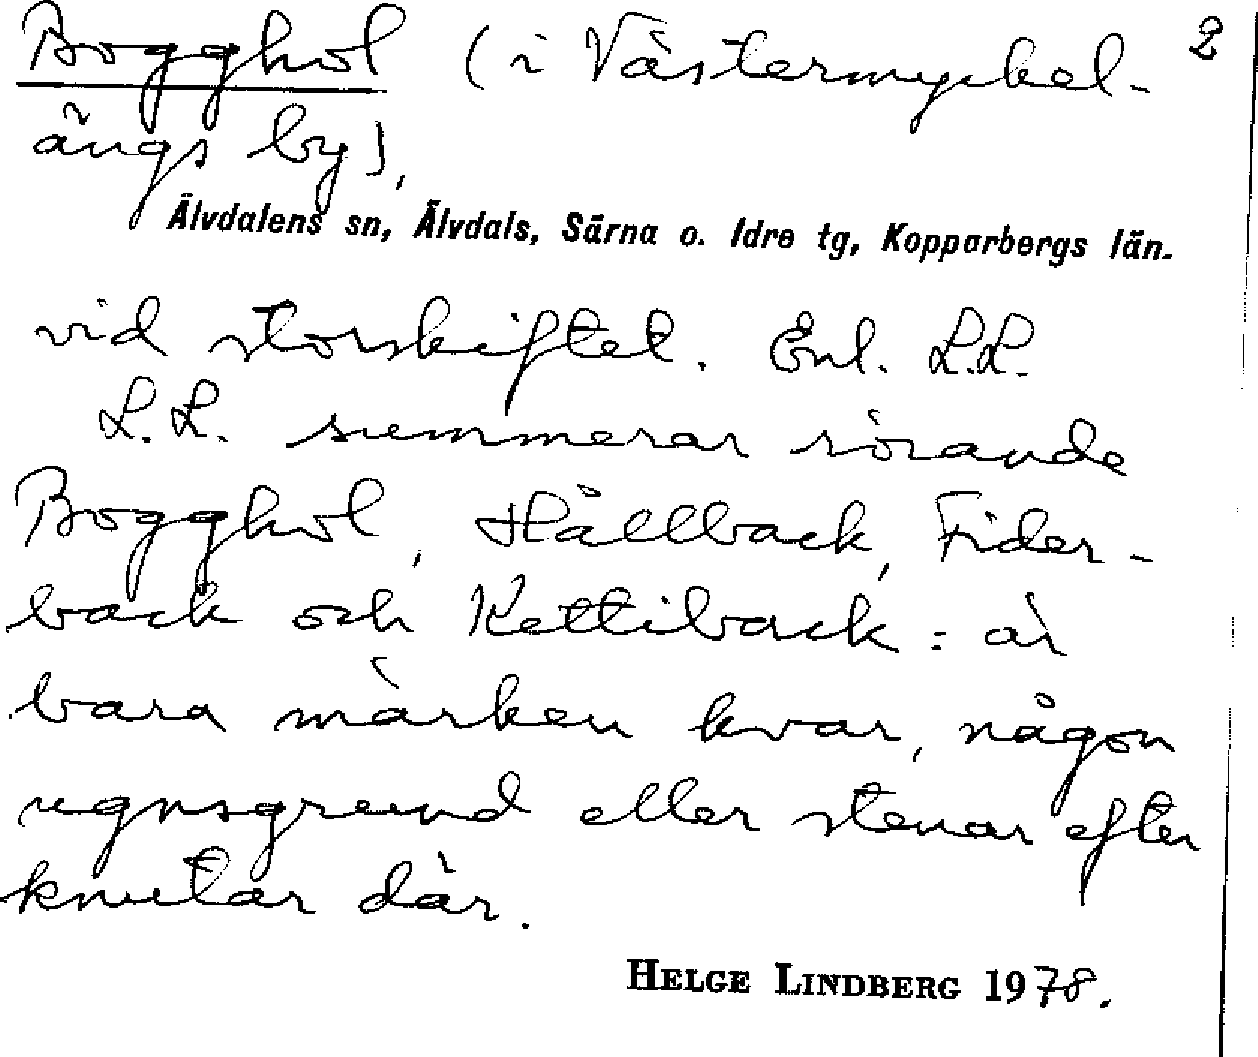 Bogghol (i Västermyckel- 2
ängs by),
Älvdalens sn, Älvdals, Särna o. Idre tg, Kopparbergs län.
vid storskiftet. Enl. L.L.
L.L. summerar rörande
Bogghol, Hållback, Fider-
back och Kettiback: är
bara märken kvar, någon
ugnsgrund eller stenar efter
knutar där.
HELGE LINDBERG 1978.